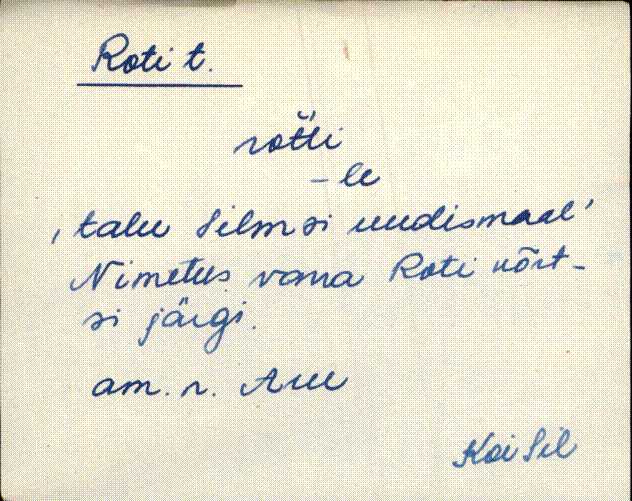 Roti t.
rotti
- le
'talu Silmsi uudismaal'
Nimetus vana Roti kõrt-
si järgi.
am. r. Auu
Koi Sil